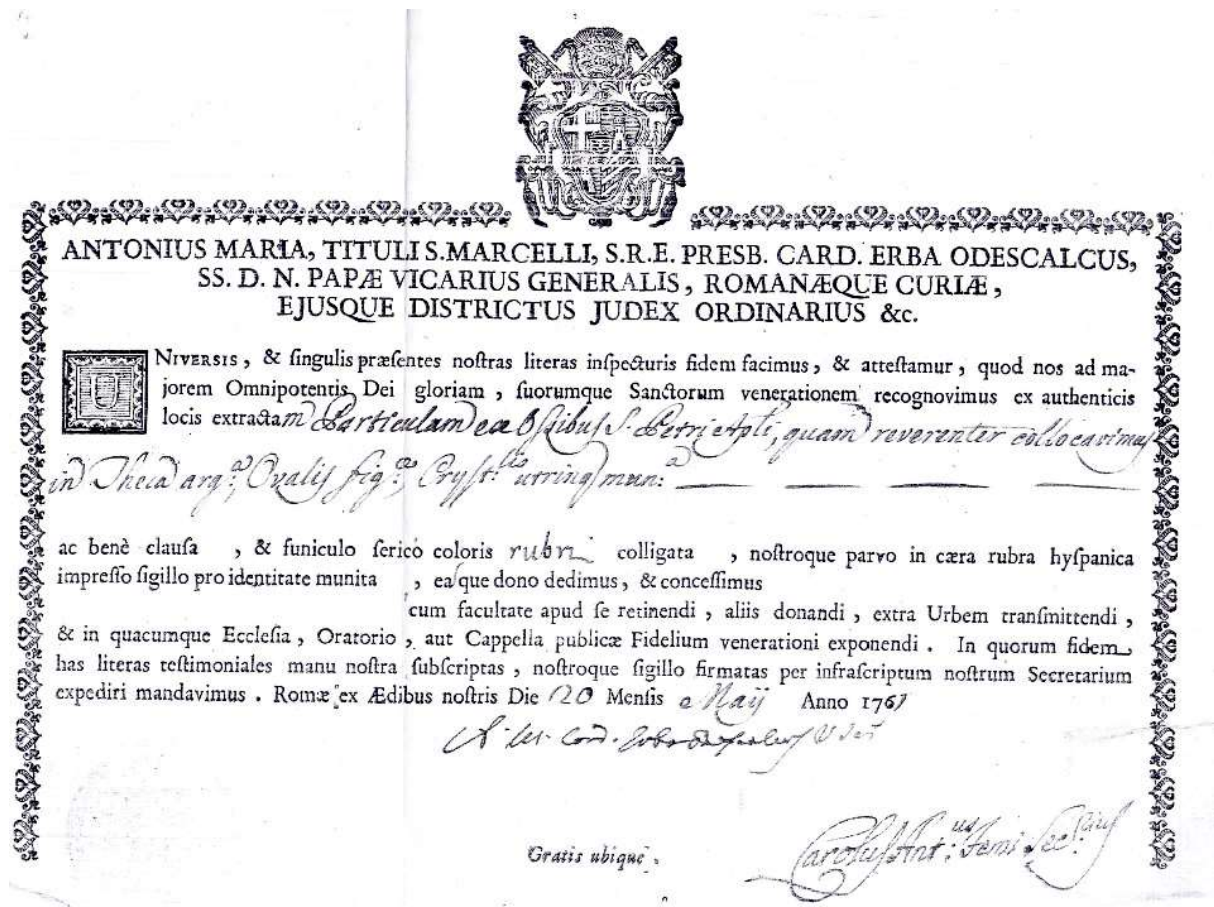 ANTONIUS MARIA, TITULI S.MARCELLI, S.R.E. PRESB. CARD. ERBA ODESCALCUS,
SS. D. N. PAPÆ VICARIUS GENERALIS, ROMANÆQUE CURIÆ,
EJUSQUE DISTRICTUS JUDEX ORDINARIUS &c.
UNIVERSIS, & ſingulis præſentes noſtras literas inſpecturis fidem facimus, & atteſtamur, quod nos ad ma-
jorem Omnipotentis Dei gloriam, ſuorumque Sanctorum venerationem recognovimus ex authenticis
locis extractam Particulam ex Oſſibuſ S. Petri Apli, quam reverenter collocavimus
in Theca arg.ᵃ, Ovaliſ fig.ᵃᵉ, Cryſt.ˡˡᵒ utrinq mun.ᵃ
ac benè clauſa , & funiculo ſerico coloris rubri colligata , noſtroque parvo in cæra rubra hyſpanica
impreſſo ſigillo pro identitate munita , eaſque dono dedimus, & conceſſimus
cum facultate apud ſe retinendi, aliis donandi, extra Urbem tranſmittendi,
& in quacumque Eccleſia, Oratorio, aut Cappella publicæ Fidelium venerationi exponendi. In quorum fidem
has literas teſtimoniales manu noſtra ſubſcriptas, noſtroque ſigillo firmatas per infraſcriptum noſtrum Secretarium
expediri mandavimus. Romæ ex Ædibus noſtris Die 20 Menſis Maij Anno 1761
A. M. Card. Erba
Carolus Ant.ᵘˢ Sec.ʳⁱᵘˢ
Gratis ubique.